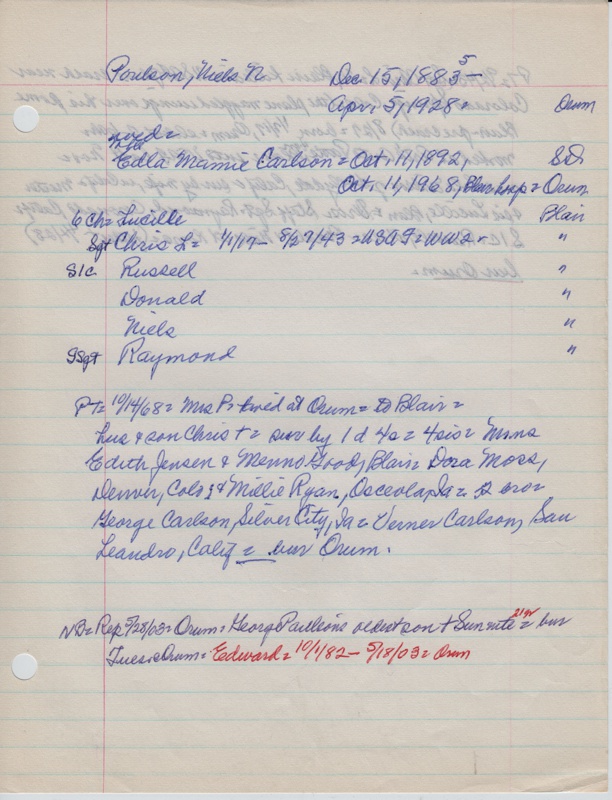 Poulson, Niels N Dec 15, 1883 5 -
Apr. 5, 1928 = Orum
wed =
Edla Mamie Carlson = Oct. 17, 1892, SD
Oct. 11, 1968, Blair hosp = Orum
6 ch = Lucille Blair
Sgt Chris L = 1/1/17 - 8/27/43 = USAF = WW2 - "
S1C Russell "
Donald "
Niels "
SSgt Raymond "
PT = 10/14/68 = Mrs P = lived at Orum = to Blair =
hus & son Chris + = surv by 1 d 4 s = 4 sis = Mmes
Edith Jensen & Menno Good, Blair = Dora Moss,
Denver, Colo; & Millie Ryan, Osceola, Ia = 2 bro =
George Carlson, Silver City, Ia = Verner Carlson, San
Leandro, Calif = bur Orum.
NB = Rep 5/28/03 = Orum = Georg oldest son + Sun nite 21 yr = bur
Tues @ Orum = Edward = 10/1/82 - 5/18/03 = Orum